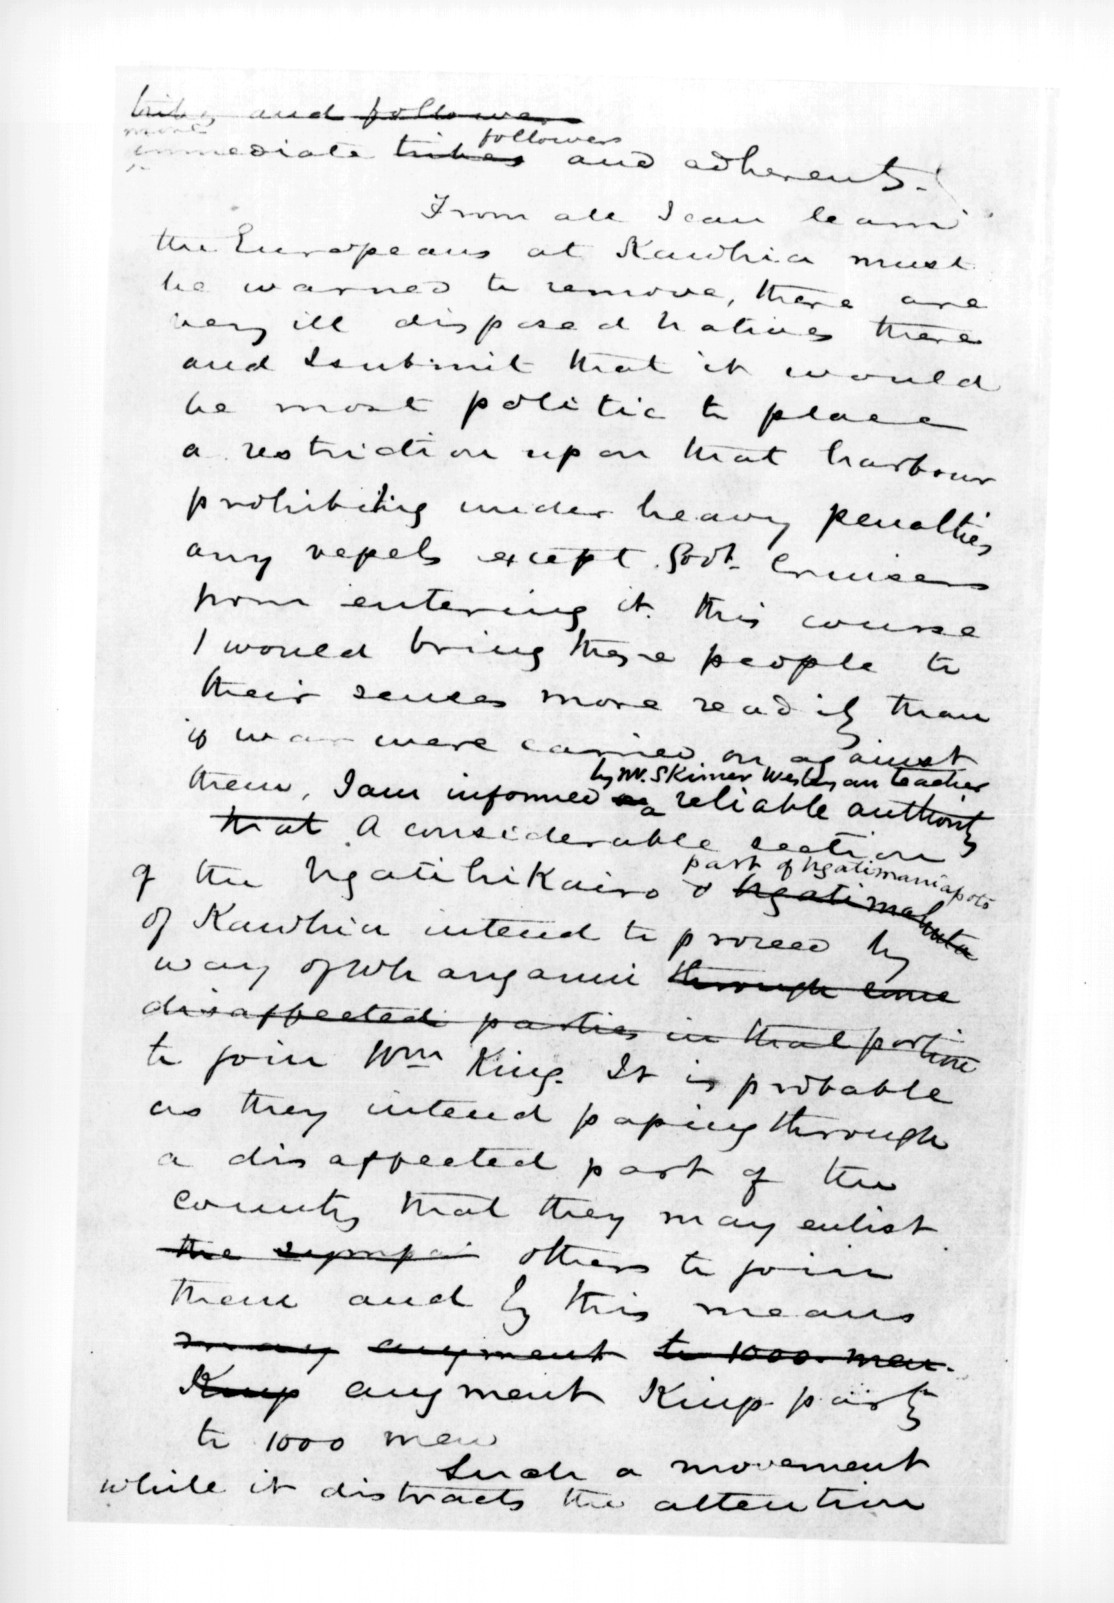 tribes and followers
more followers
immediate tribes and adherents.
From all I can learn
the Europeans at Kawhia must
be warned to remove, there are
very ill disposed natives there
and I submit that it would
be most politic to place
a restriction upon that harbour
prohibiting under heavy penalties
any vessels except Govt. Cruisers
from entering it. This course
I would bring these people to
their senses more readily than
if war were carried on against
by Mr. Skinner Wesleyan teacher
them, I am informed a reliable authority
that A considerable section
part of Ngatimaniapoto
of the Ngatihikairo & Ngatimahuta
of Kawhia intend to proceed by
way of Whanganui through some
disaffected parties in that portion
to join Wm King. It is probable
as they intend passing through
a disaffected part of the
country that they may enlist
the sympa others to join
them and by this means
may augment to 1000 men.
Kings augment Kings party
to 1000 men
Such a movement
while it distracts the attention